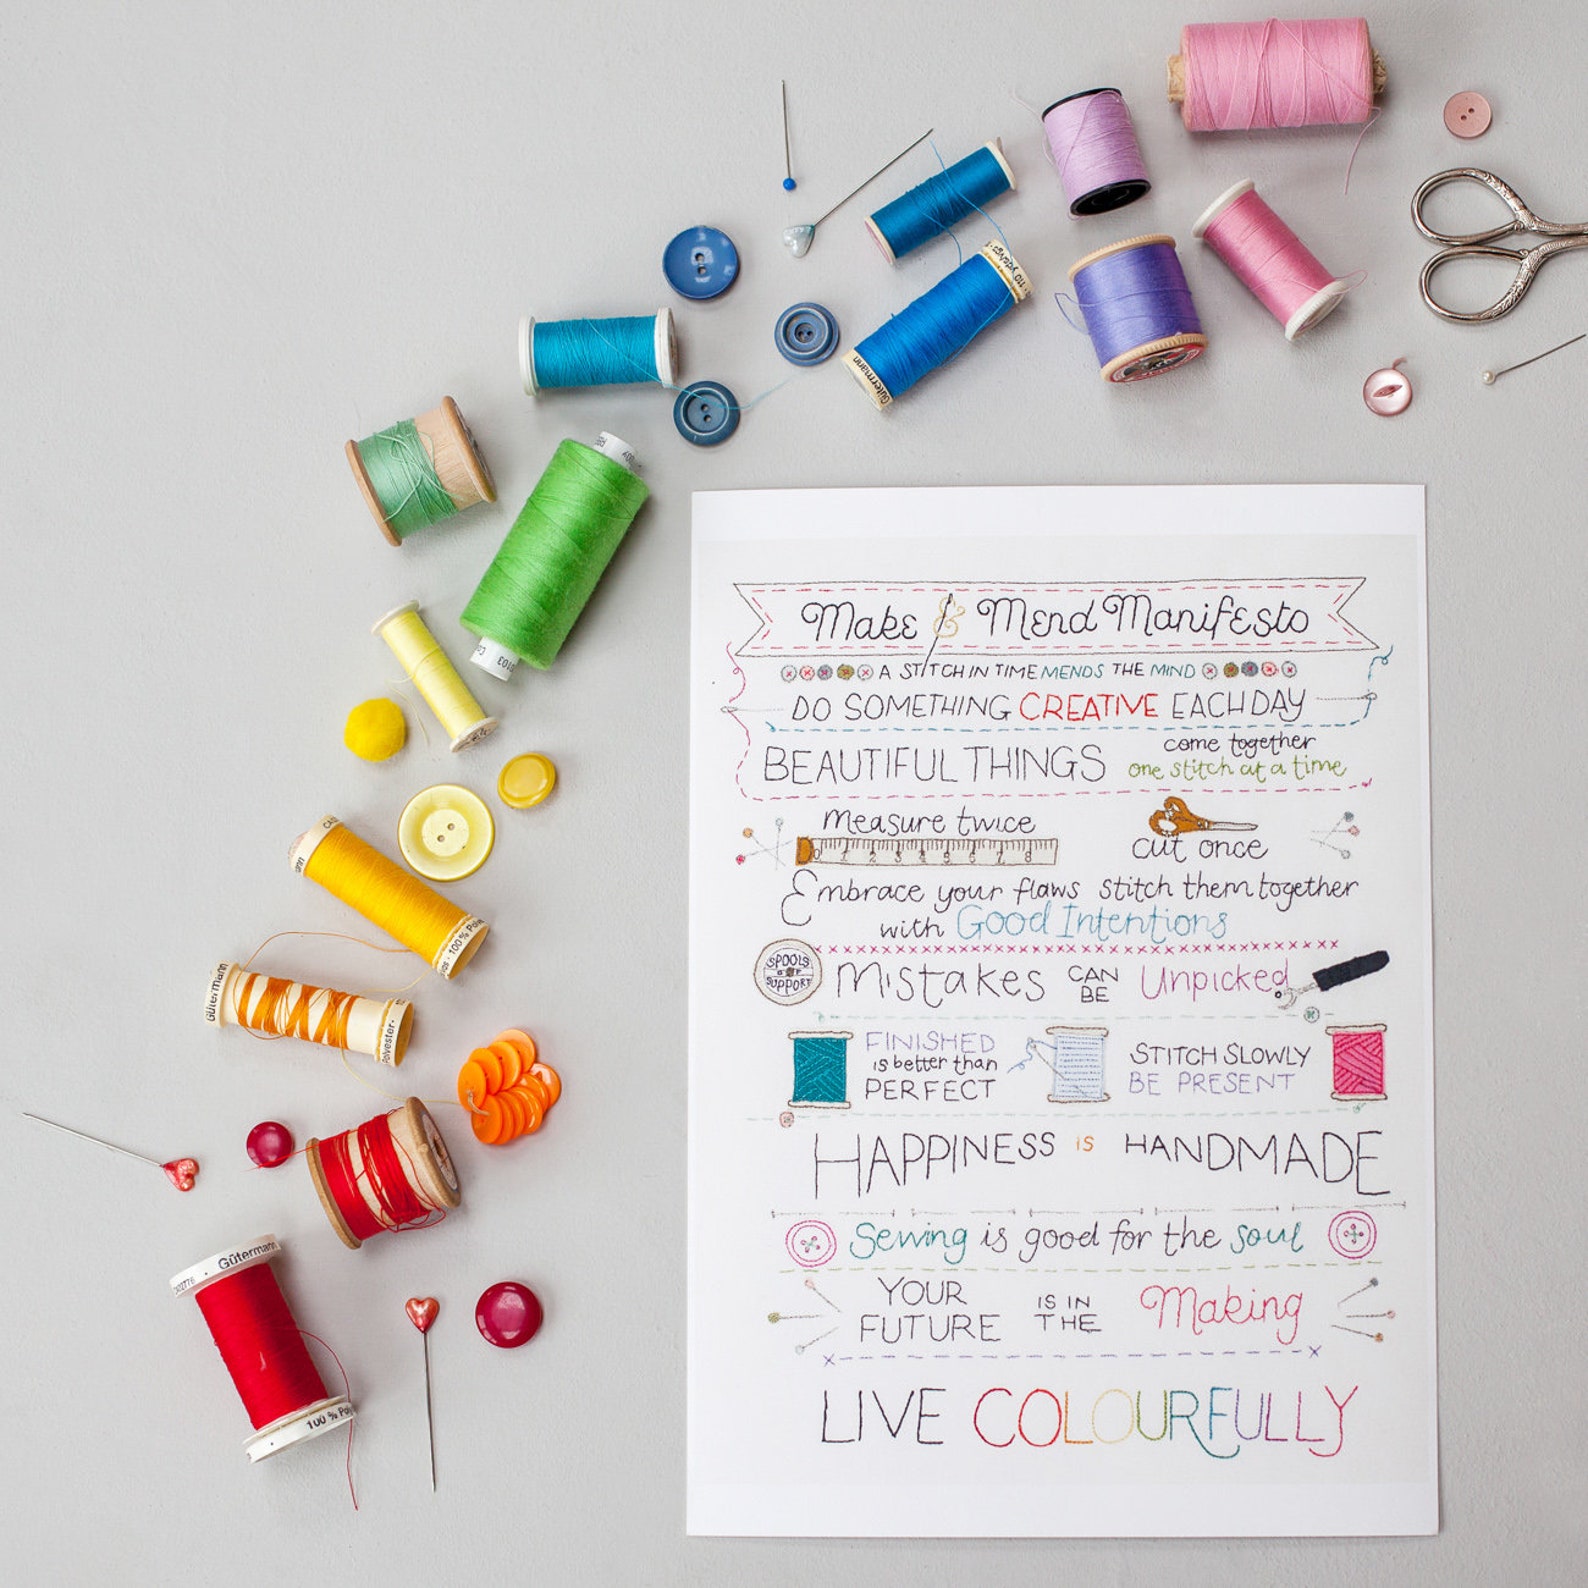 110 yds
Gütermann
CA 02776
Gütermann
100% Pol
100% Pol
Gütermann
Polvester
5103
Make & Mend Manifesto
A STITCH IN TIME MENDS THE MIND
DO SOMETHING CREATIVE EACH DAY
BEAUTIFUL THINGS come together
one stitch at a time
measure twice
0 1 2 3 4 5 6 7 8
cut once
Embrace your flaws stitch them together
with Good Intentions
SPOOLS
OF
SUPPORT
Mistakes CAN BE Unpicked
FINISHED
is better than
PERFECT
STITCH SLOWLY
BE PRESENT
HAPPINESS IS HANDMADE
Sewing is good for the soul
YOUR
FUTURE
IS IN
THE
Making
LIVE COLOURFULLY